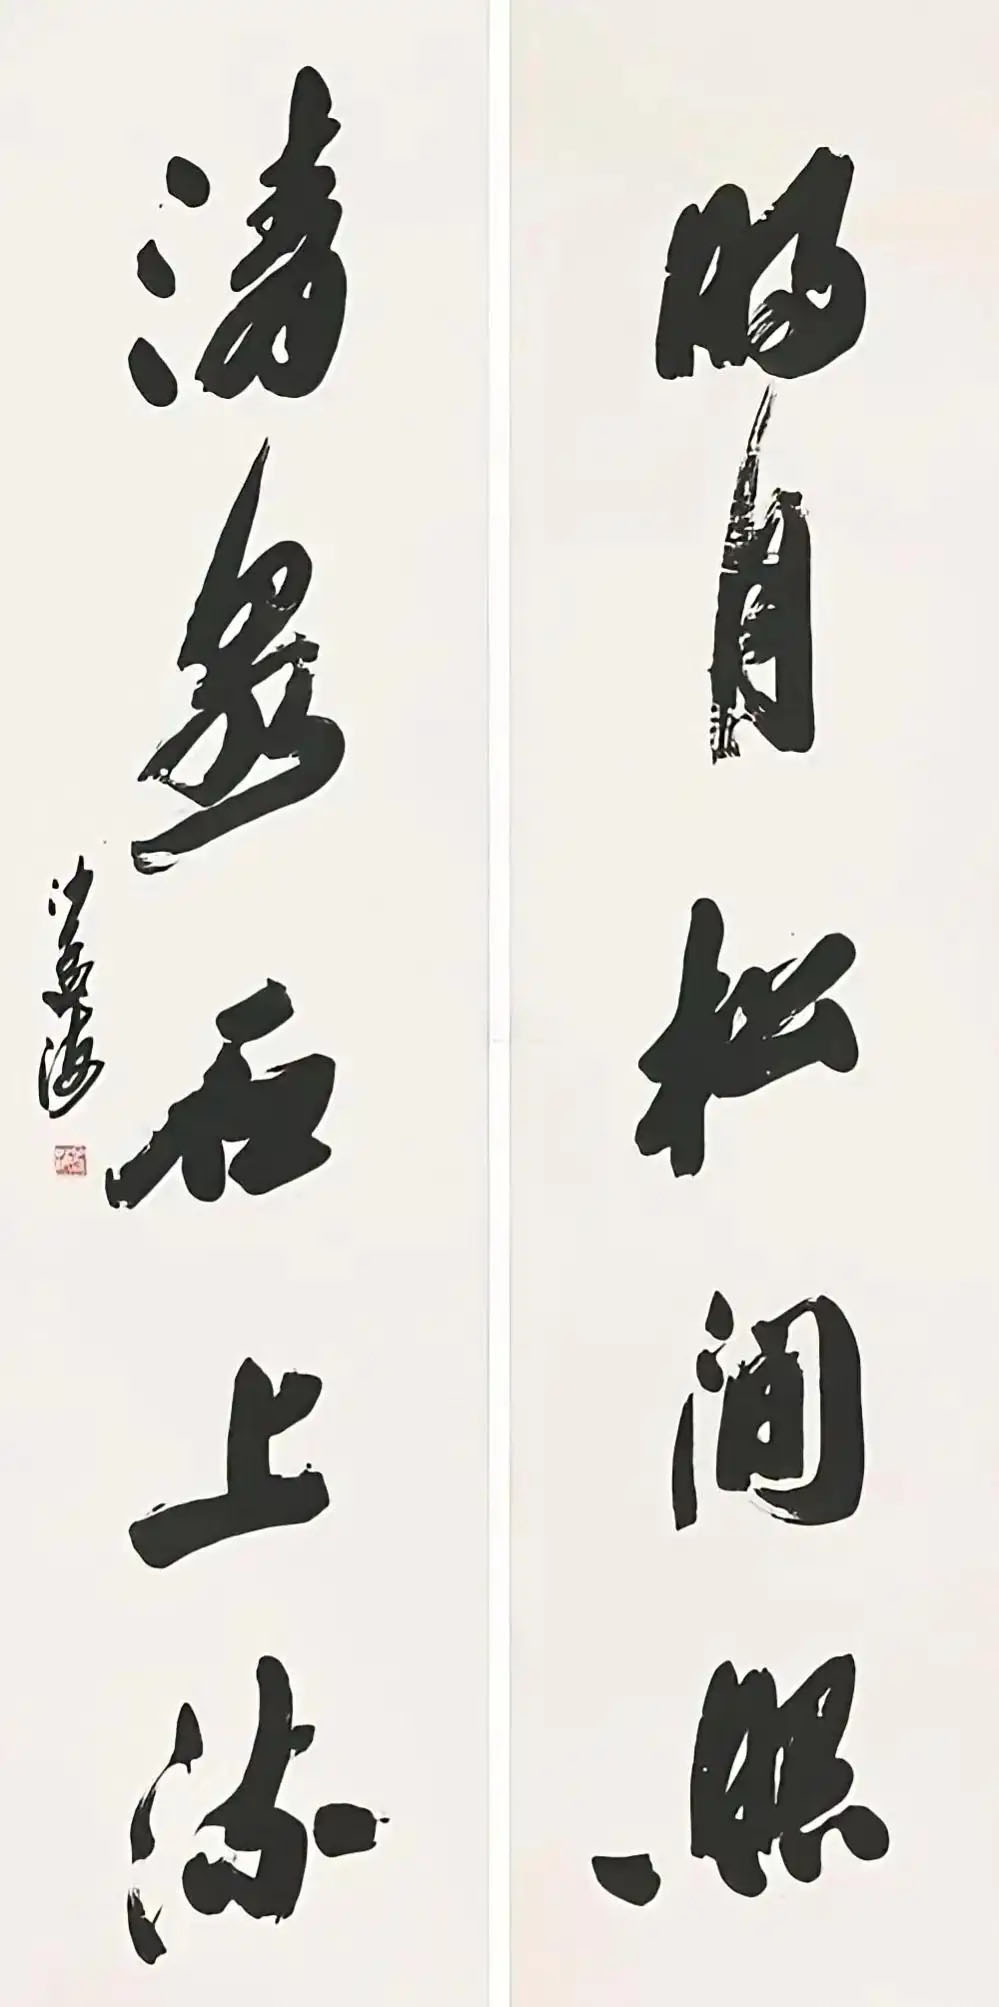 明月松间照
清泉石上流
沙孟海